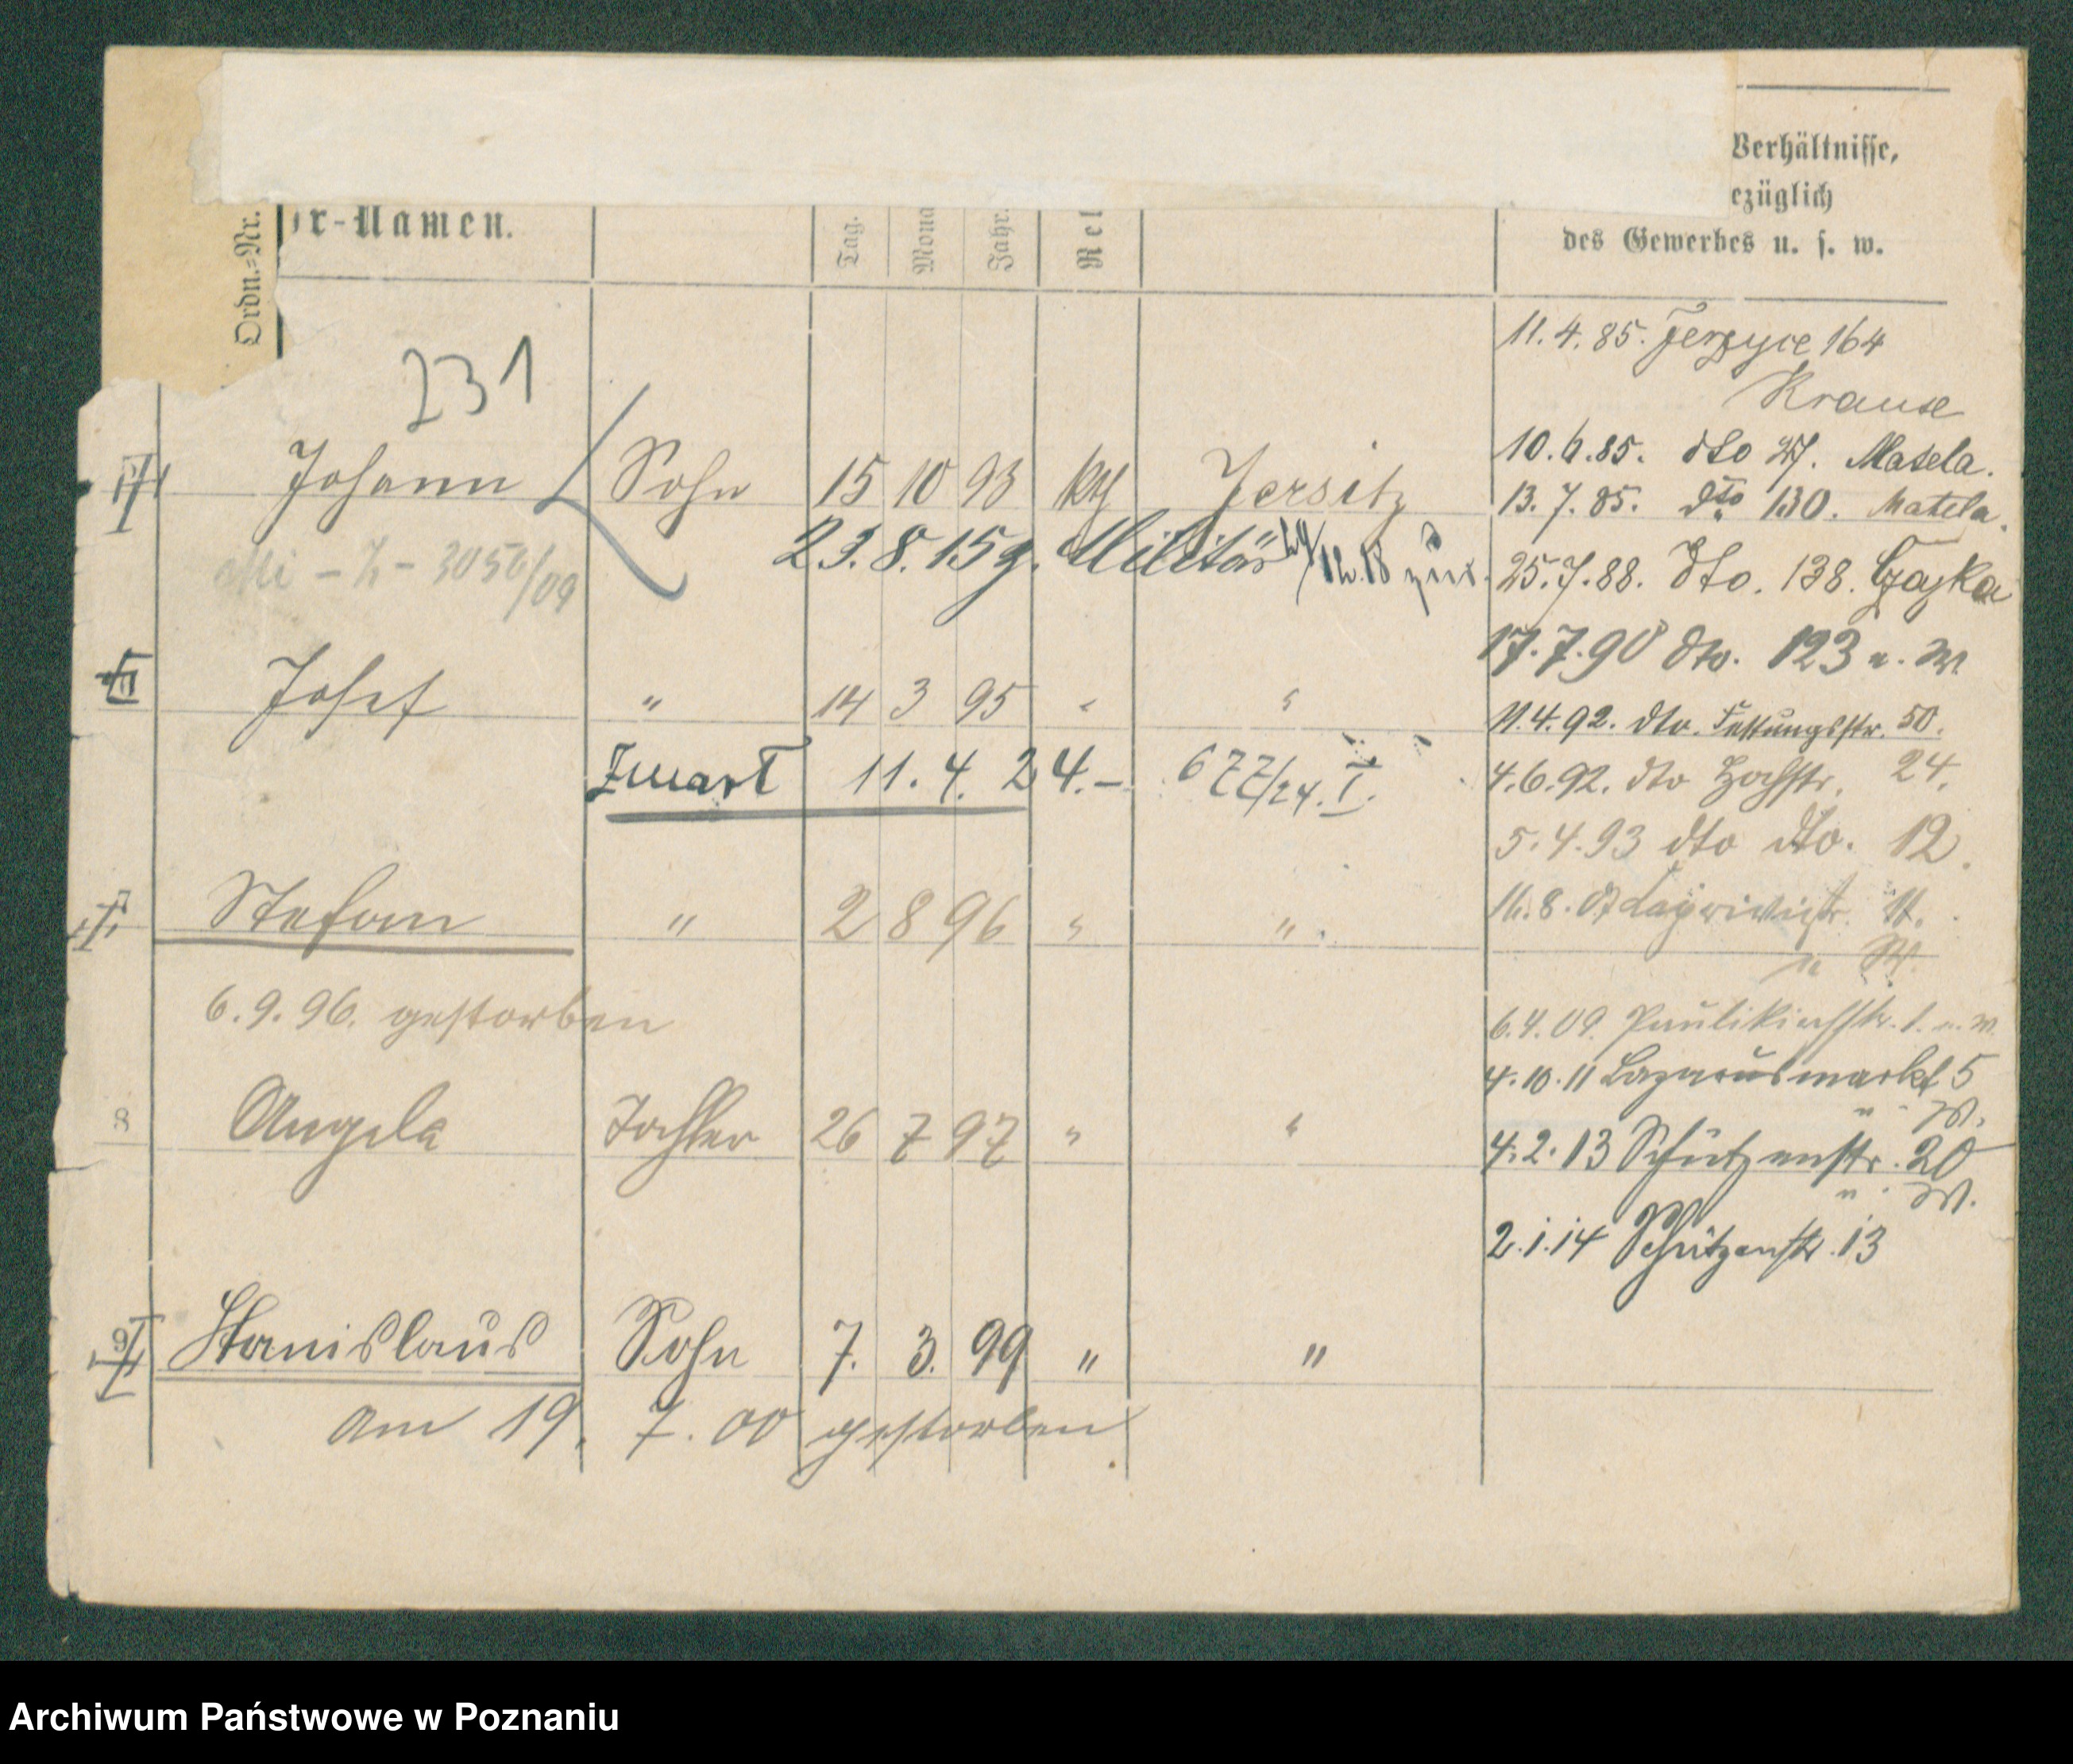 Verhältnisse,
ezüglich
des Gewerbes u. s. w.
Ordn.=Nr.
r-Namen.
Tag.
Mona
Jahr.
Rel
231
11. 4. 85. Jerzyce 164
Krause
Johann Sohn 15 10 93 kth Jersitz
10. 6. 85. dto 27. Matela.
13. 7. 85. dto 130. Matela.
Mi - Z - 3050/09
23. 8. 15 z. Militär 12.18 zur.
25. 7. 88. dto. 138. Czajka
17. 7. 90 dto. 123 u. W
Josef " 14 3 95 " "
11. 4. 92. dto. Festungsstr. 50.
Zmarł 11. 4. 24. - 677/24. I.
4. 6. 92. dto Hochstr. 24.
5. 4. 93 dto dto. 12.
Stefan " 2 8 96 " "
16. 8. 07 11.
u W.
6. 9. 96. gestorben
6. 4. 09. Paulikirchstr. 1. u. W.
4. 10. 11 Lazarusmarkt 5
u. W.
8 Angela Tochter 26 7 97 " "
4. 2. 13 Schützenstr. 20
u. W.
2. 1. 14 Schützenstr. 13
9 Stanislaus Sohn 7. 3. 99 " "
am 19. 7. 00 gestorben
Archiwum Państwowe w Poznaniu